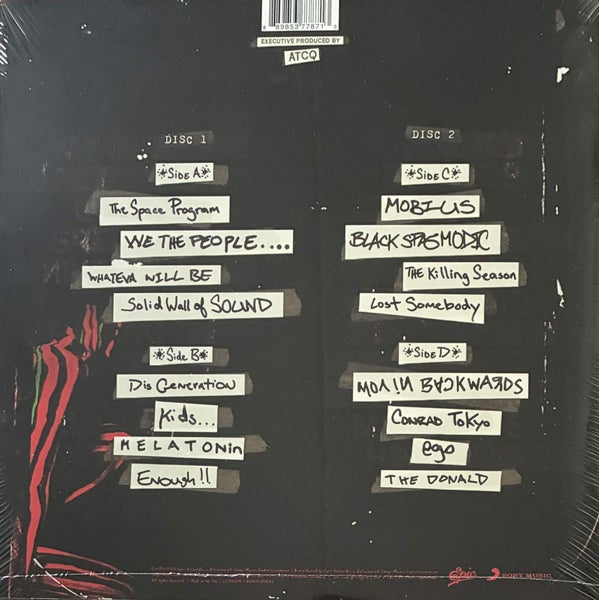 89853 77871 3
EXECUTIVE PRODUCED BY
ATCQ
DISC 1
*Side A*
The Space Program
WE THE PEOPLE....
WHATEVA WILL BE
Solid Wall of SOUND
*Side B*
Dis Generation
Kids...
MELATONin
Enough!!
DISC 2
*Side C*
MOBIUS
BLACK SPASMODIC
THE Killing Season
Lost Somebody
*Side D*
MOVIN BACKWARDS
CONRAD TOKYO
ego
THE DONALD
Epic
SONY MUSIC